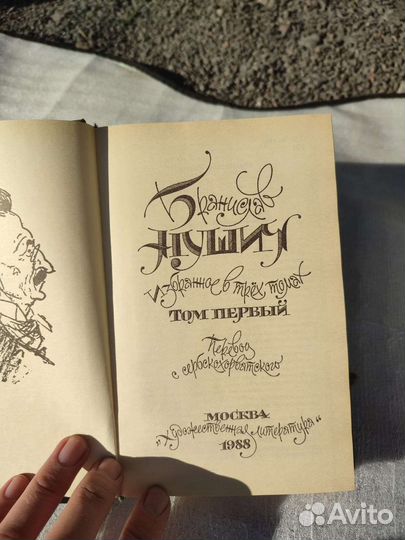 Бранислав
НУШИЧ
Избранное в трёх томах
ТОМ ПЕРВЫЙ
Перевод
с сербскохорватского
МОСКВА
"Художественная литература"
1988
Avito